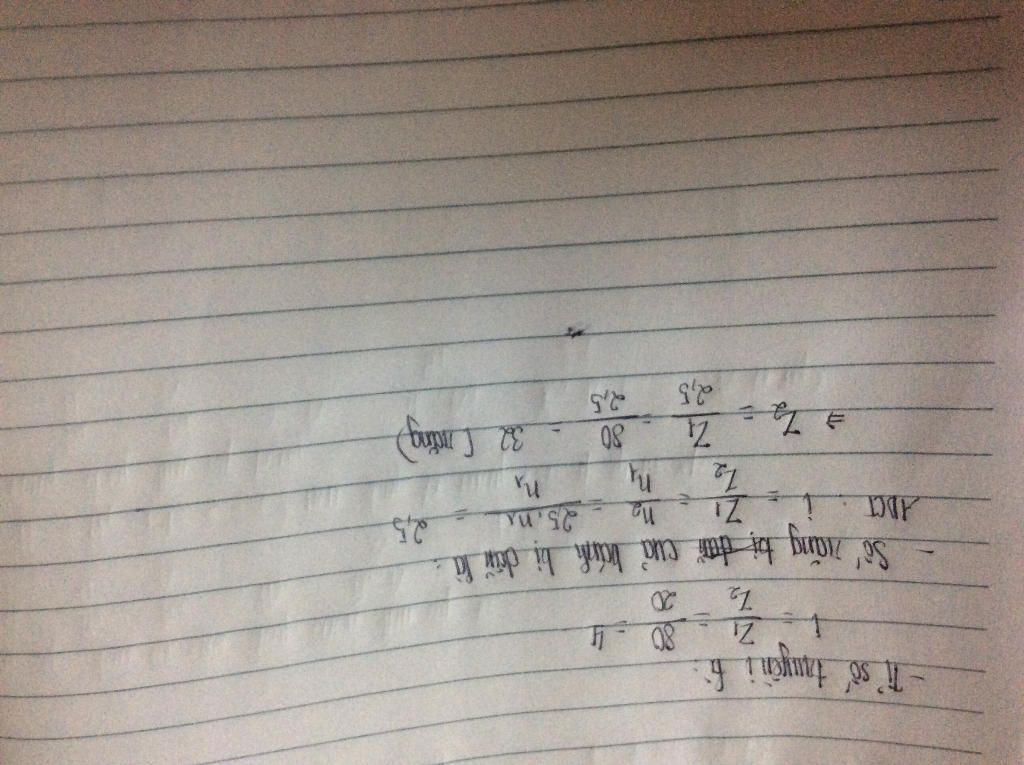 - Tỉ số truyền i là:
i = Z1/Z2 = 80/20 = 4
- Số răng bị dẫn của bánh bị dẫn là:
ADCT: i = Z1/Z2 = n2/n1 = 2,5.n1/n1 = 2,5
⇒ Z2 = Z1/2,5 = 80/2,5 = 32 (răng)